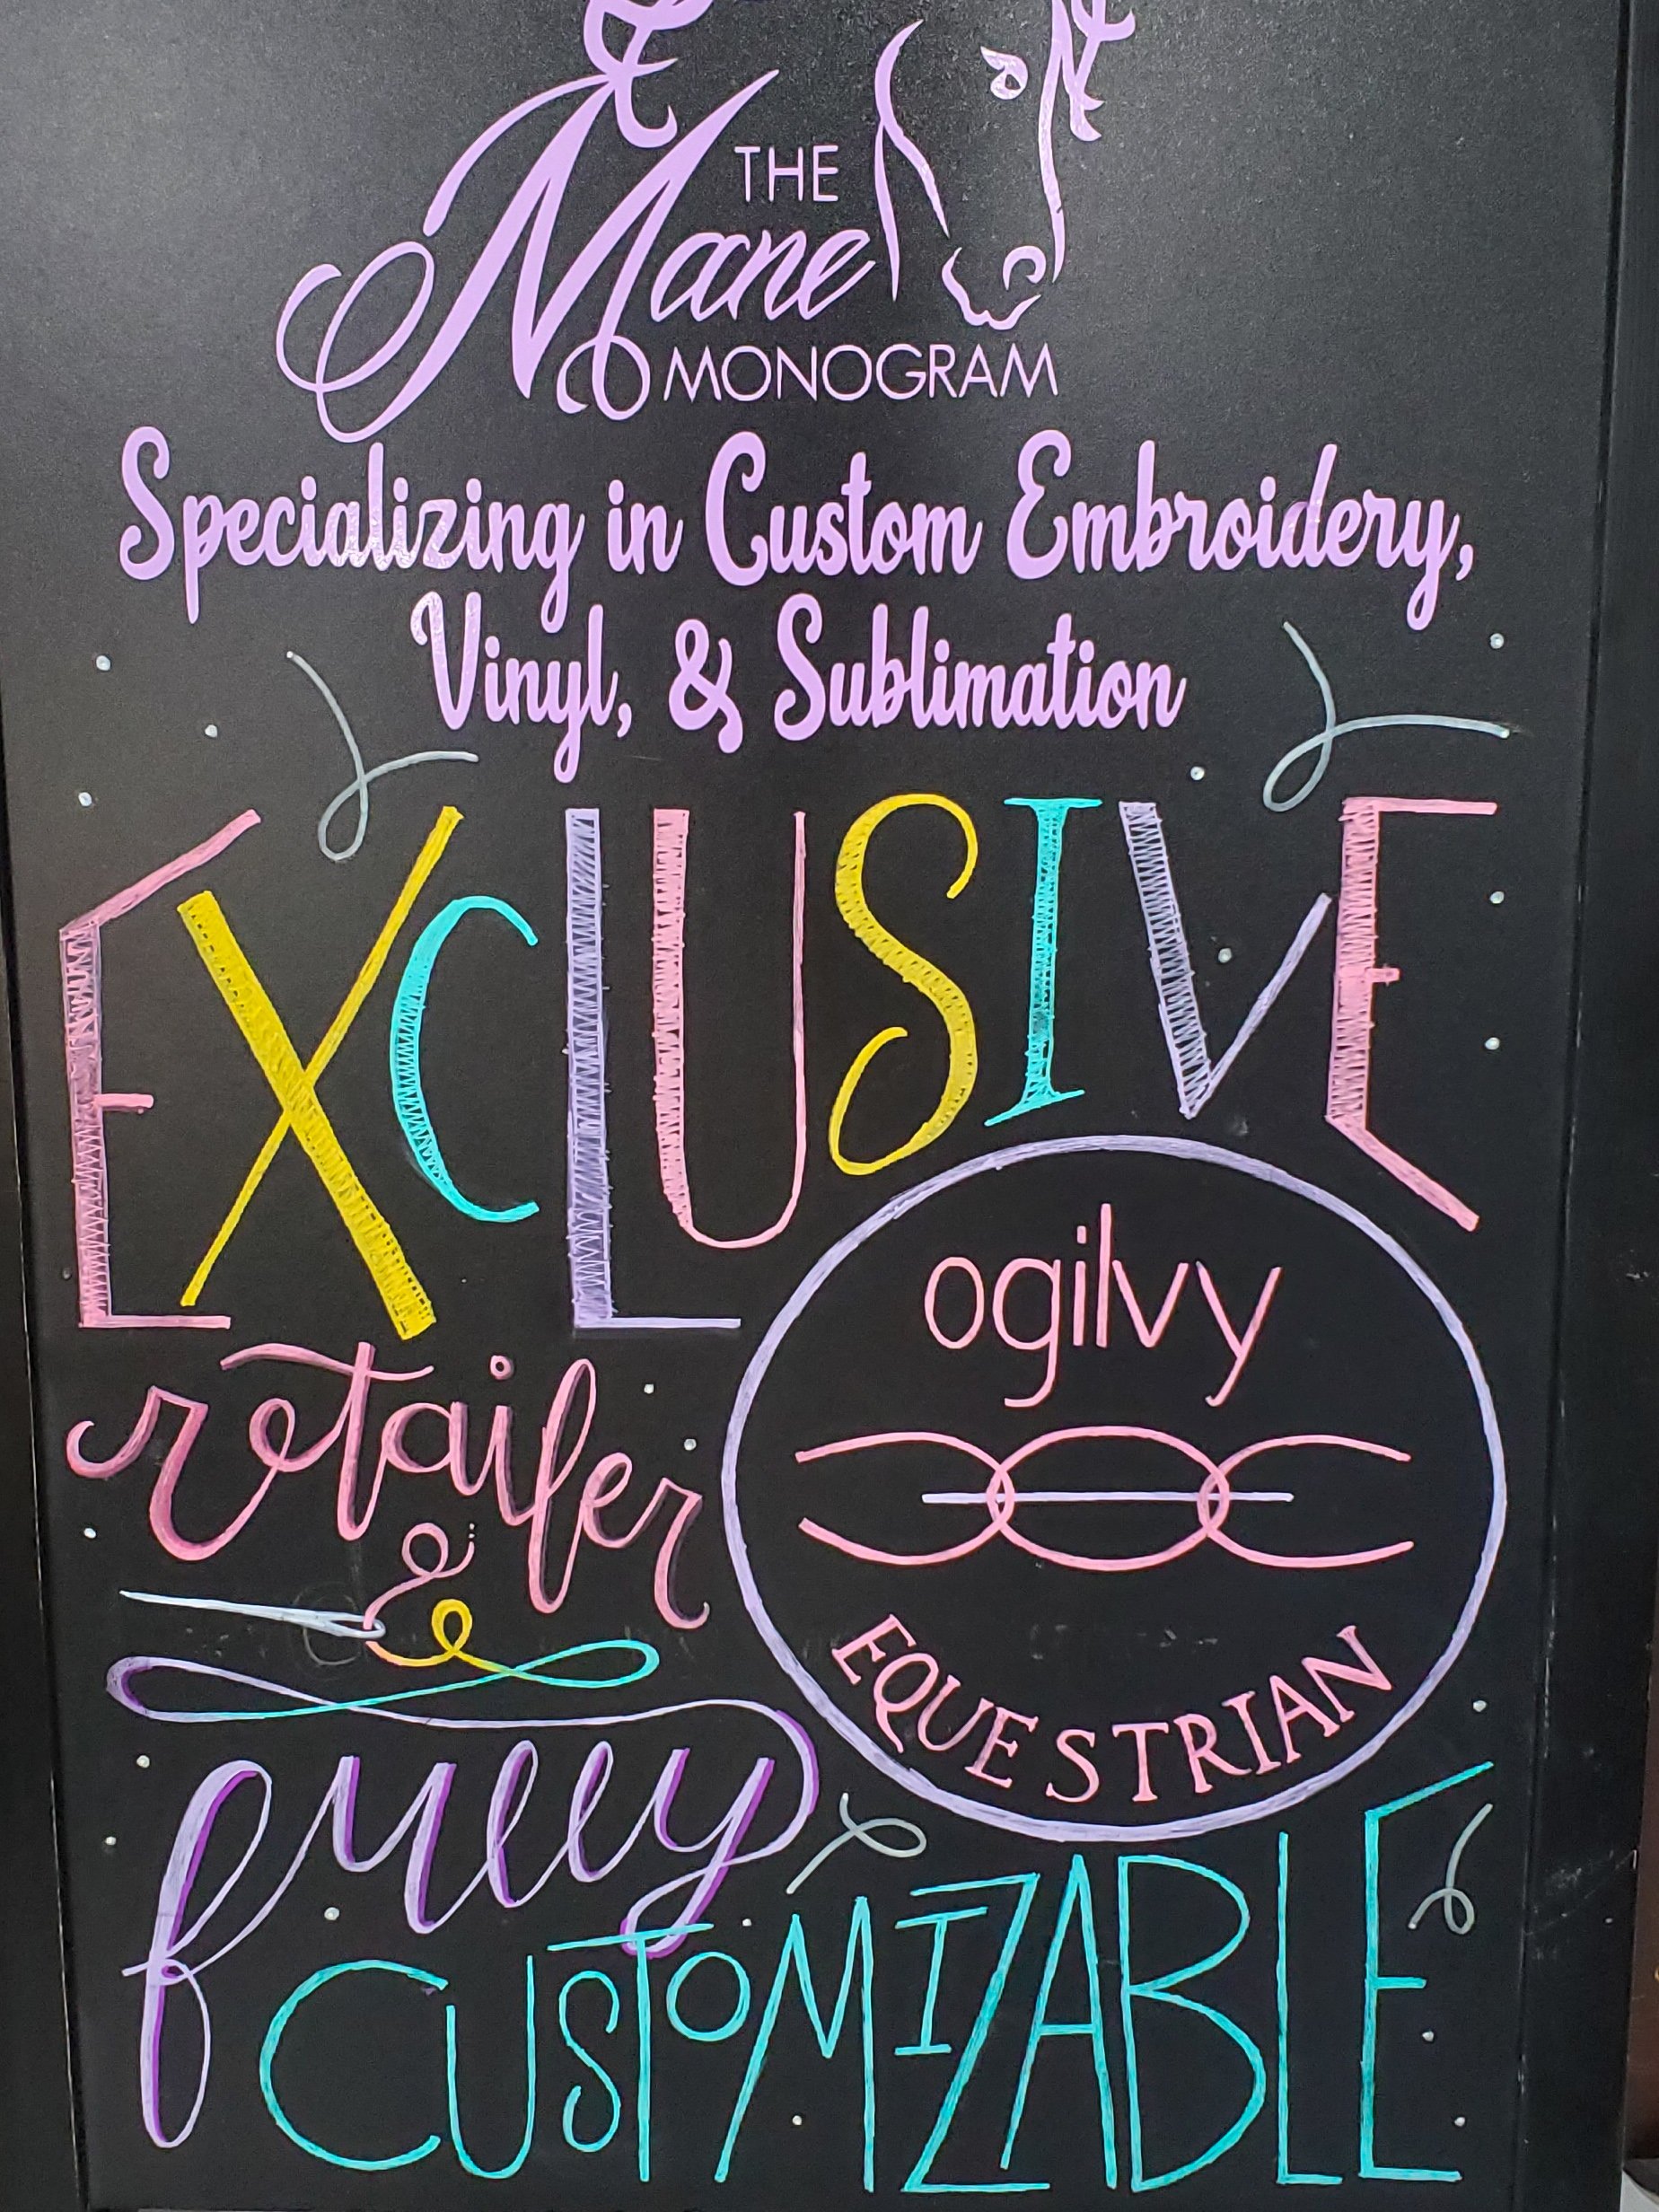 THE
Mane
MONOGRAM
Specializing in Custom Embroidery,
Vinyl, & Sublimation
EXCLUSIVE
retailer
&
ogilvy
EQUESTRIAN
fully
CUSTOMIZABLE